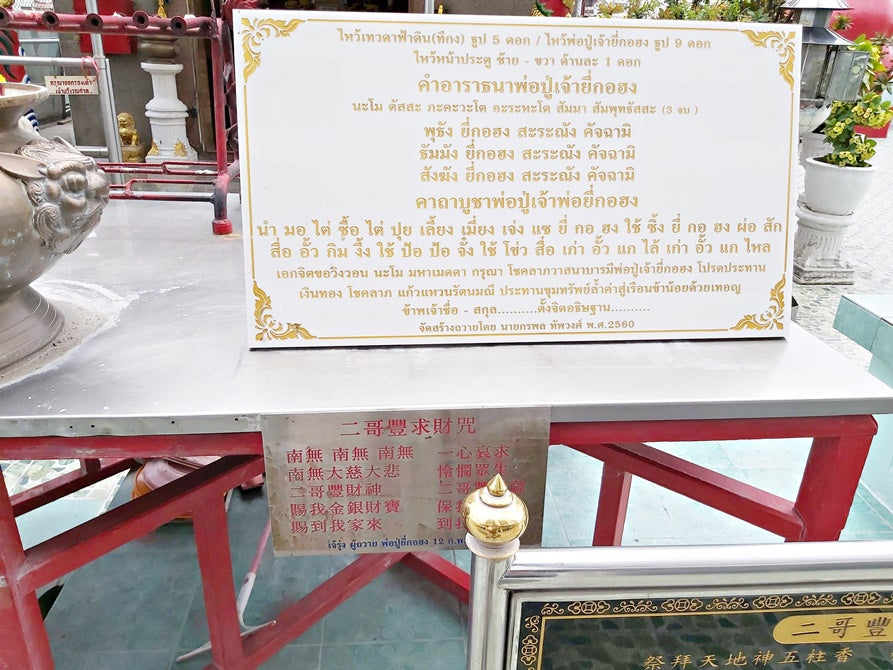 ไหว้เทวดาฟ้าดิน(ทีกง) ธูป 5 ดอก / ไหว้พ่อปู่เจ้ายี่กอฮง ธูป 9 ดอก
ไหว้หน้าประตู ซ้าย - ขวา ด้านละ 1 ดอก
คำอาราธนาพ่อปู่เจ้ายี่กอฮง
นะโม ตัสสะ ภะคะวะโต อะระหะโต สัมมา สัมพุทธัสสะ (3 จบ )
พุธัง ยี่กอฮง สะระณัง คัจฉามิ
ธัมมัง ยี่กอฮง สะระณัง คัจฉามิ
สังฆัง ยี่กอฮง สะระณัง คัจฉามิ
คาถาบูชาพ่อปู่เจ้าพ่อยี่กอฮง
นำ มอ ไต่ ซื้อ ไต่ ปุย เลี้ยง เมี่ยง เจ่ง แซ ยี่ กอ ฮง ใช้ ซิ้ง ยี่ กอ ฮง ผ่อ สัก
สื่อ อั้ว กิม งิ้ง ใช้ ป้อ ป้อ จั๋ง ใช้ โข่ว สื่อ เก่า อั้ว แก ไล้ เก่า อั้ว แก ไหล
เอกจิตขอวิงวอน นะโม มหาเมตตา กรุณา โชคลาภวาสนาบารมีพ่อปู่เจ้ายี่กอฮง โปรดประทาน
เงินทอง โชคลาภ แก้วแหวนรัตนมณี ประทานขุมทรัพย์ล้ำค่าสู่เรือนข้าน้อยด้วยเทอญ
ข้าพเจ้าชื่อ - สกุล.........ตั้งจิตอธิษฐาน..........
จัดสร้างถวายโดย นายกรพล ทัพวงศ์ พ.ศ.2560
二哥豐求財咒
南無 南無 南無 一心哀求
南無大慈大悲 憐憫眾生
二哥豐財神 二哥豐
賜我金銀財寶 保
賜到我家來 到
เจ๊รุ่ง ผู้ถวาย พ่อปู่ยี่กอฮง 12 ก.พ.
二哥豐
祭拜天地神五柱香